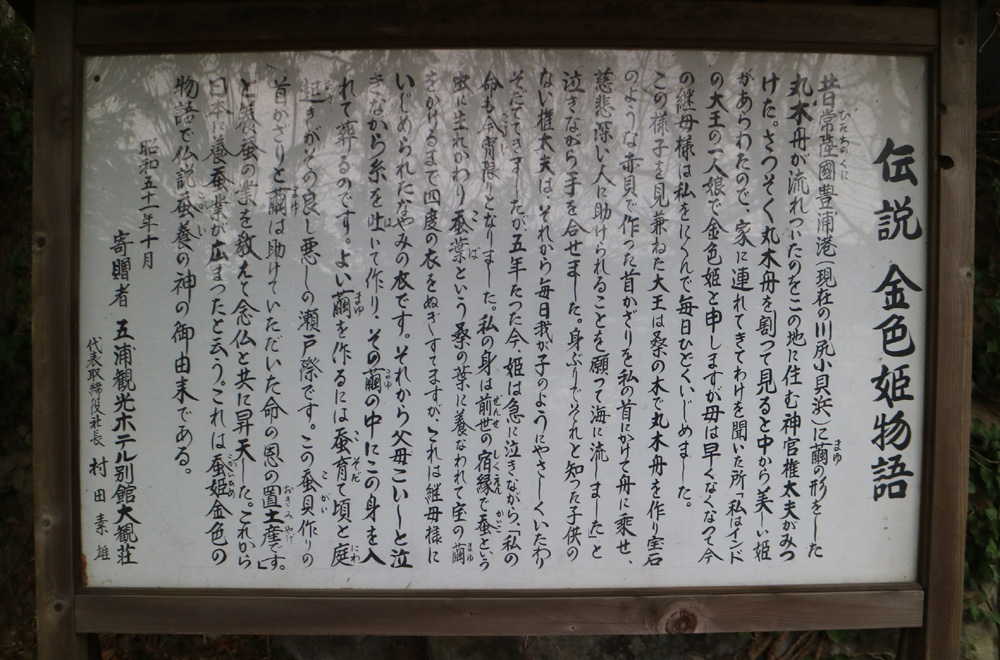 伝説 金色姫物語
昔常陸國豊浦港（現在の川尻小貝浜）に繭の形をした
丸木舟が流れついたのをこの地に住む神宮権太夫がみつ
けた。さつそく丸木舟を割って見ると中から美しい姫
があらわたので、家に連れてきてわけを聞いた所「私はインド
の大王の一人娘で金色姫と申しますが母は早くなくなって今
の継母様は私をにくんで毎日ひどくいじめました。
この様子を見兼ねた大王は桑の木で丸木舟を作り宝石
のような赤貝で作った首かざりを私の首にかけて舟に乘せ、
慈悲深い人に助けられることを願って海に流しました」と
泣きながら手を合せました。身ぶりでそれと知った子供の
ない権太夫は、それから毎日我が子のようにやさしくいたわり
そだててきましたが五年たった今、姫は急に泣きながら、「私の
命も今宵限りとなりました。私の身は前世の宿縁で蚕という
虫に生れかわり蚕葉という桑の葉に養なわれて室の繭
をかけるまで四度の衣をぬぎすてますが、これは継母様に
いじめられたなやみの衣です。それから父母こいしと泣
きながら糸を吐いて作り、その繭の中にこの身を入
れて葬るのです。よい繭を作るには蚕育て頃と庭
起きがその良し悪しの瀬戸際です。この蚕貝作りの
首かざりと繭は助けていただいた命の恩の置土産です。」
と養蚕の業を教えて念仏と共に昇天した。これから
日本に養蚕業が広まつたと云う。これは蚕姫金色の
物語で仏説蚕養の神の御由来である。
昭和五十一年十月
寄贈者 五浦観光ホテル別館大観荘
代表取締役社長 村田素雄